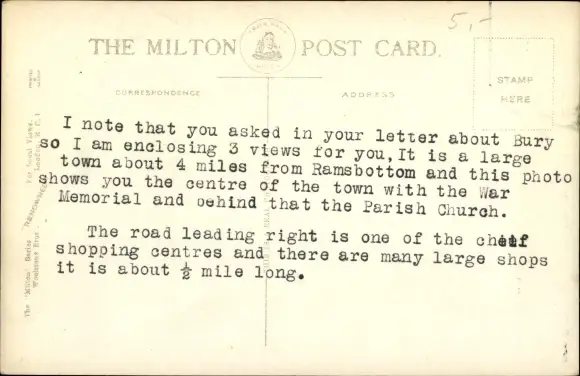 5,-
THE MILTON POST CARD.
CORRESPONDENCE
ADDRESS
STAMP
HERE
I note that you asked in your letter about Bury
so I am enclosing 3 views for you,It is a large
town about 4 miles from Ramsbottom and this photo
shows you the centre of the town with the War
Memorial and behind that the Parish Church.
The road leading right is one of the chief
shopping centres and there are many large shops
it is about ½ mile long.
The "Milton" Series
Woolstone Bros
London, E.C.1